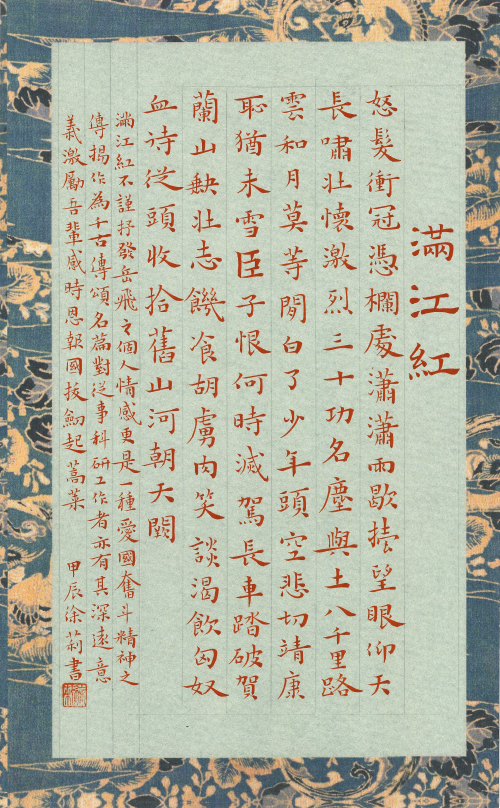 滿江紅
怒髮衝冠憑欄處瀟瀟雨歇擡望眼仰天
長嘯壯懷激烈三十功名塵與土八千里路
雲和月莫等閒白了少年頭空悲切靖康
恥猶未雪臣子恨何時滅駕長車踏破賀
蘭山缼壯志饑飡胡虜肉笑談渴飲匈奴
血待從頭收拾舊山河朝天闕
滿江紅不謹抒發岳飛之個人情感更是一種愛國奮斗精神之
傳揚作為千古傳頌名篇對從事科研工作者亦有其深遠意
義激勵吾輩感時思報國拔劍起蒿萊 甲辰徐莉書